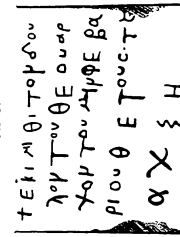 + εκιμιθι τομ δου
λομ του θε ουαρ
χομ του μημ Φε βα
ριου θ ετους·τη
α χ ξ Η